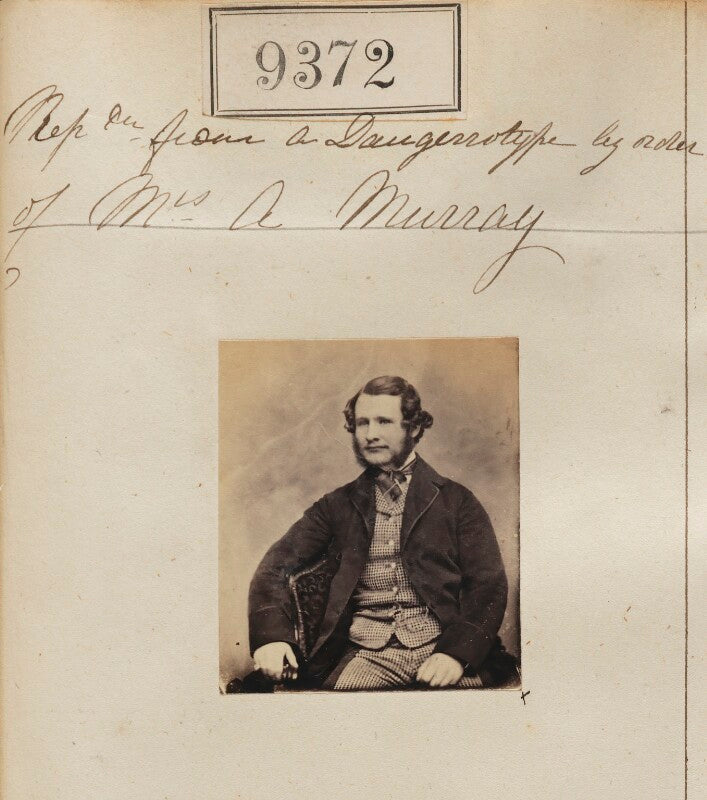 9372
Rep dn from a Daugerrotype by order
of Mrs A Murray